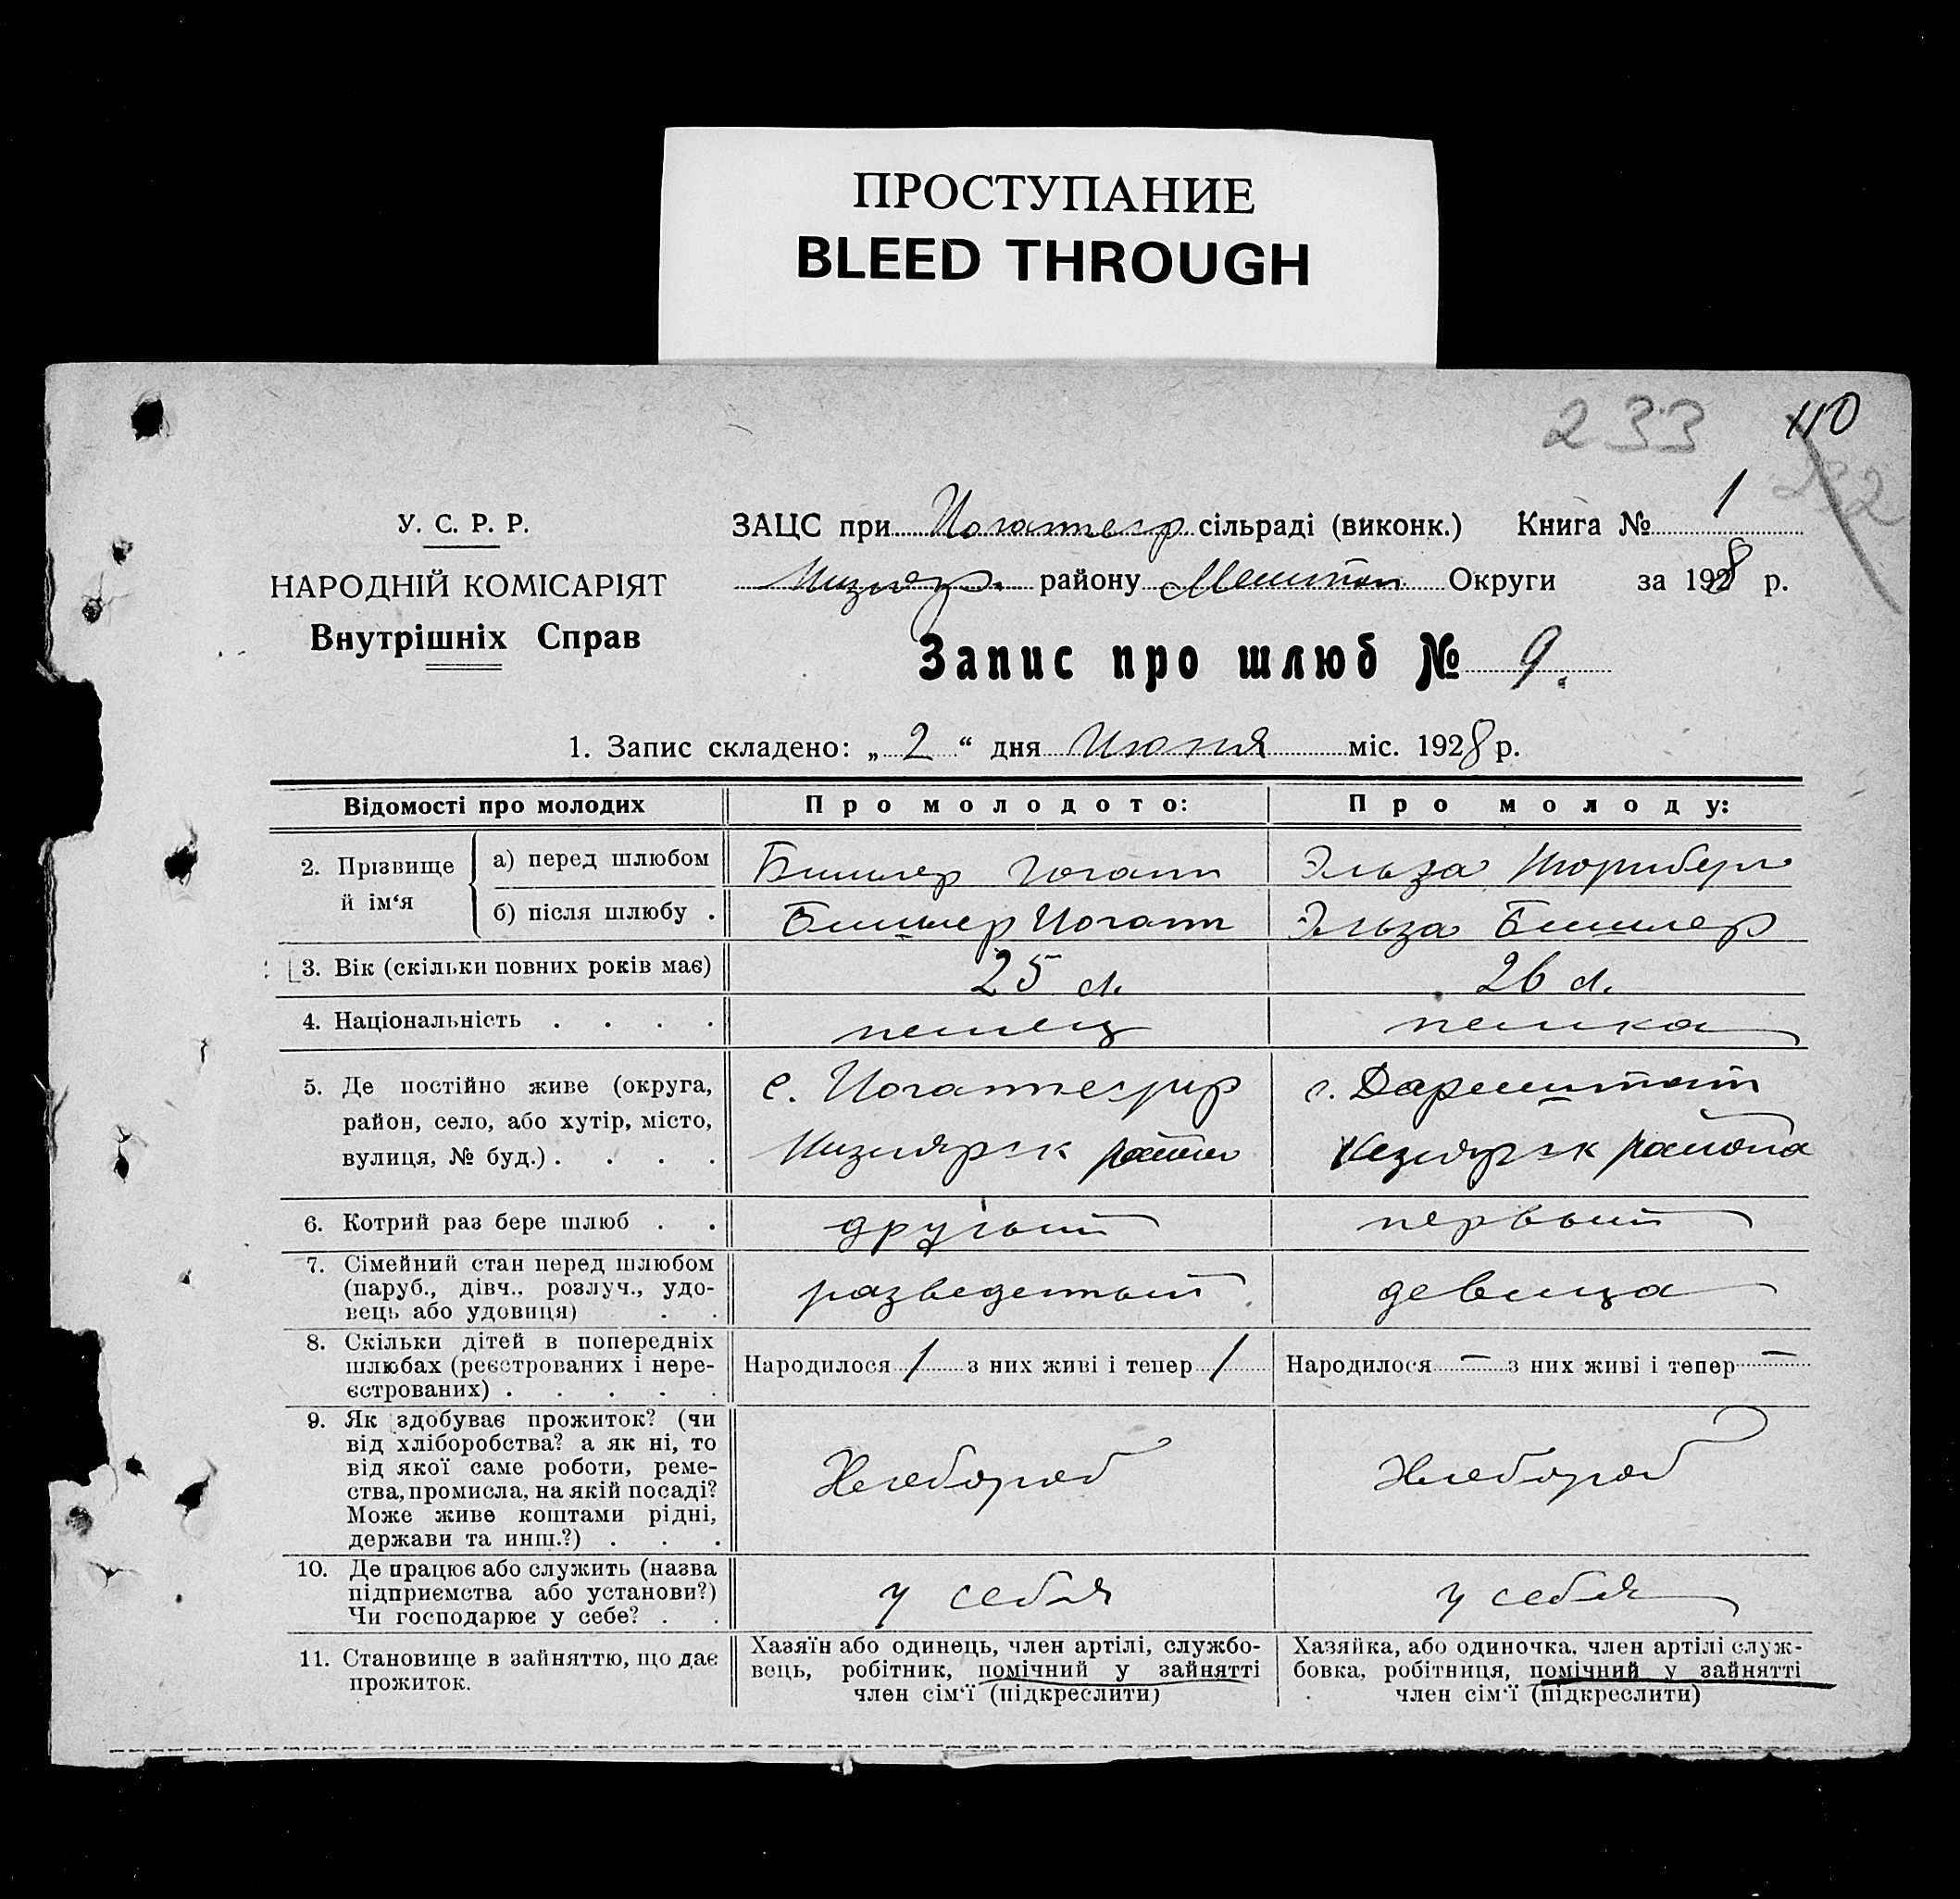 ПРОСТУПАНИЕ
BLEED THROUGH
233 110
У. С. Р. Р.
НАРОДНІЙ КОМІСАРІЯТ
Внутрішніх Справ
ЗАЦС при Иоганнеср сільраді (виконк.) Книга № 1
району Мелитоп. Округи за 1928 р.
Запис про шлюб № 9.
1. Запис складено: „ 2 “ дня Июня міс. 1928 р.
Відомості про молодих
Про молодото:
Про молоду:
2. Прізвище й ім‘я
а) перед шлюбом
Бишлер Иоганн
Эльза
б) після шлюбу .
Бишлер Иоганн
Эльза Бишлер
3. Вік (скільки повних років має)
25 л.
26 л.
4. Національність . . . .
немец
немка
5. Де постійно живе (округа,
район, село, або хутір, місто,
вулиця, № буд.) . . . .
с. Иоганнесруе
Низиярск района
с. Дармштат
района
6. Котрий раз бере шлюб . .
другый
первый
7. Сімейний стан перед шлюбом
(паруб., дівч., розлуч., удо-
вець або удовиця) . .
разведенный
девица
8. Скільки дітей в попередніх
шлюбах (реєстрованих і нере-
єстрованих) . . . . .
Народилося 1 з них живі і тепер 1
Народилося — з них живі і тепер —
9. Як здобуває прожиток? (чи
від хліборобства? а як ні, то
від якої саме роботи, реме-
ства, промисла, на якій посаді?
Може живе коштами рідні,
держави та инш.?) . . .
Хлебороб
Хлебороб
10. Де працює або служить (назва
підприємства або установи?)
Чи господарює у себе? . .
у себя
у себя
11. Становище в зайняттю, що дає
прожиток.
Хазяїн або одинець, член артілі, службо-
вець, робітник, помічний у зайнятті
член сім‘ї (підкреслити)
Хазяйка, або одиночка, член артілі служ-
бовка, робітниця, помічний у зайнятті
член сім‘ї (підкреслити)